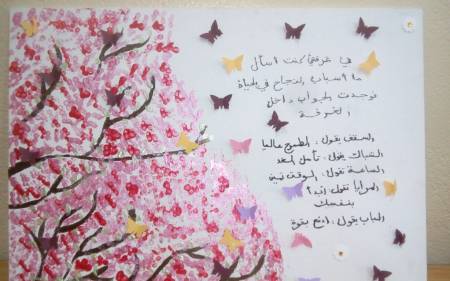 في غرفتي كنت اسأل
ما اسباب النجاح في الحياة
فوجدت الجواب داخل
الغرفة
السقف يقول، الطموح عاليا
الشباك يقول، تأمل
الساعة تقول، الوقت ثمين
المرايا تقول،
بنفسك
الباب يقول، ادفع بقوة